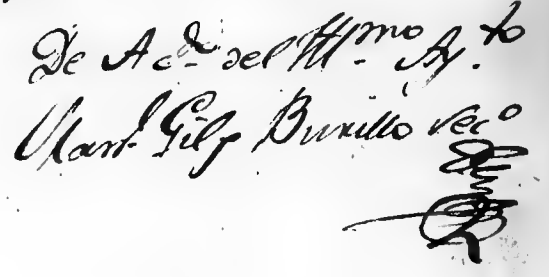 De Acdo del Ill.mo Ay.to
Mart. Gil y Burillo Secº